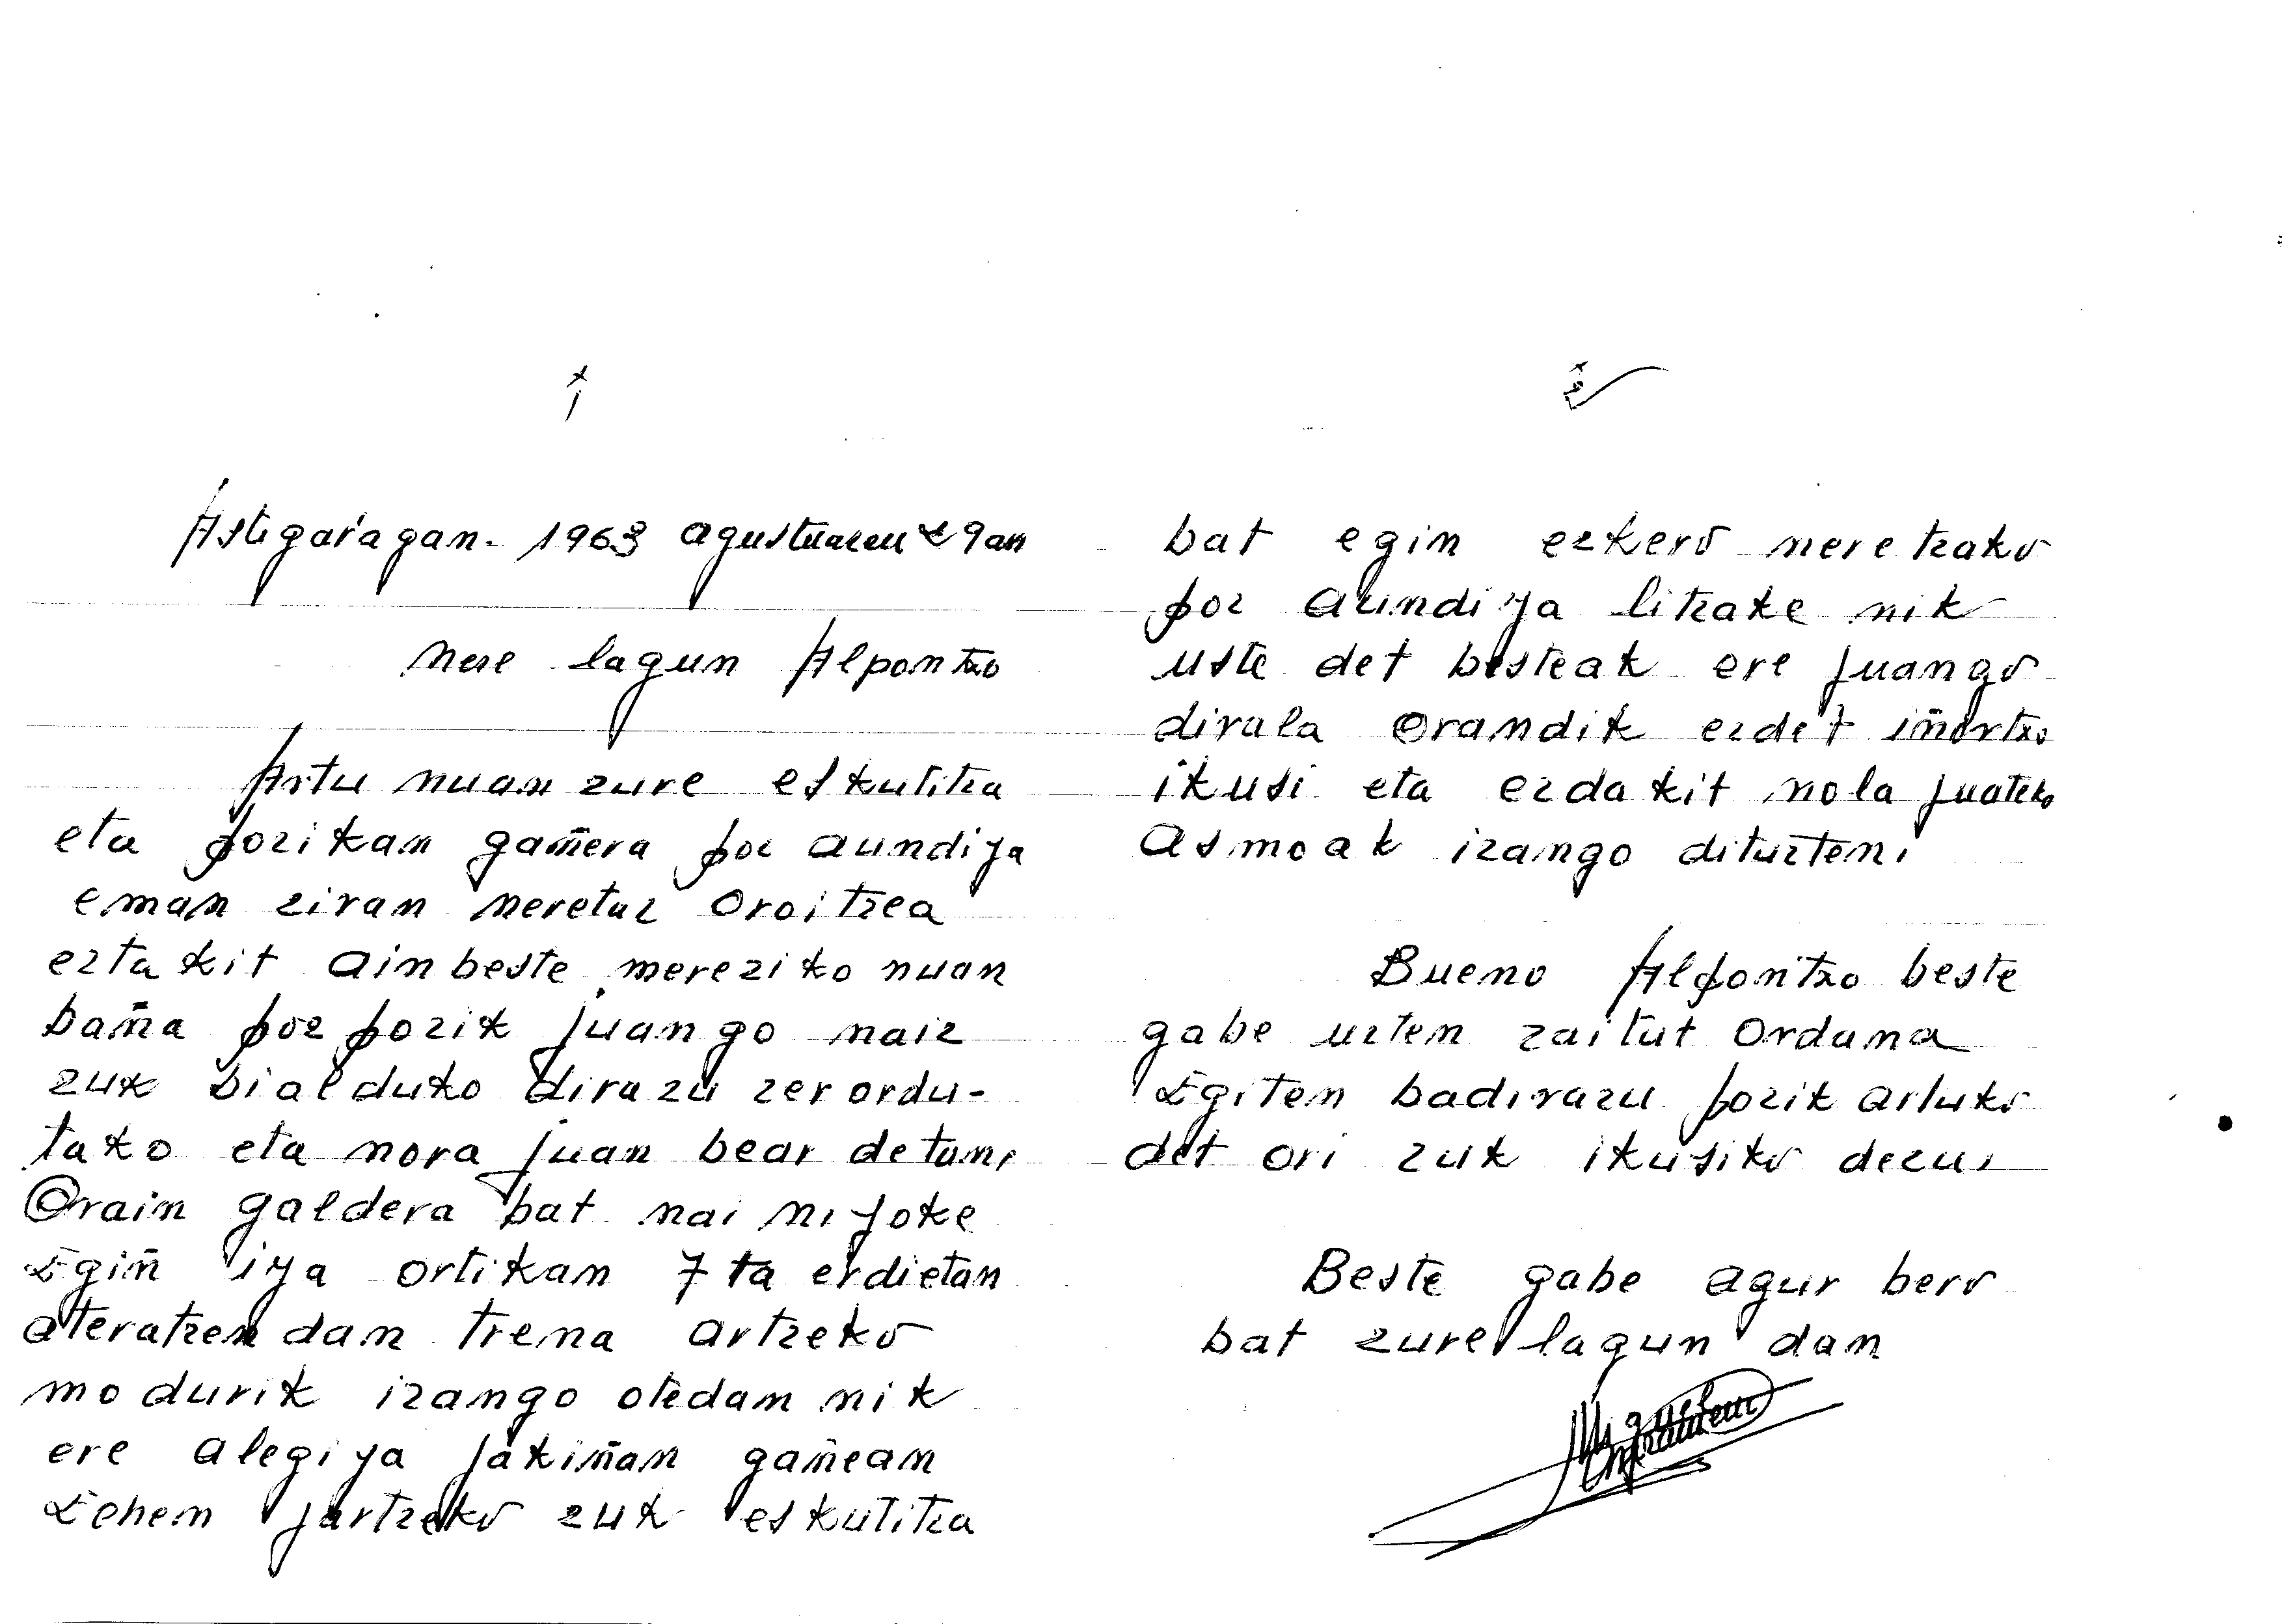 1
Astigar̃agan. 1963 agustuaren 29an
Nere lagun Alpontxo
Artu nuan zure eskutitza
eta pozikan gañera poz aundiya
eman ziran neretaz oroitzea
eztakit ainbeste mereziko nuan
baña poz pozik juango naiz
zuk bialduko dirazu zer ordu-
tako eta nora juan bear detan,
Orain galdera bat nai niyoke
Egiñ iya ortikan 7 ta erdietan
ateratzen dan trena artzeko
modurik izango otedan nik
ere alegiya jakiñan gañean
Lehen jartzeko zuk eskutitza
2
bat egin ezkero neretzako
poz aundiya litzake nik
uste det besteak ere juango
dirala Orandik ezdet iñortxo
ikusi eta ezdakit nola juateko
Asmoak izango dituzten,
Bueno Alpontxo beste
gabe uzten zaitut Ordana
Egiten badirazu pozik artuko
det ori zuk ikusiko dezu,
Beste gabe agur bero
bat zure lagun dan